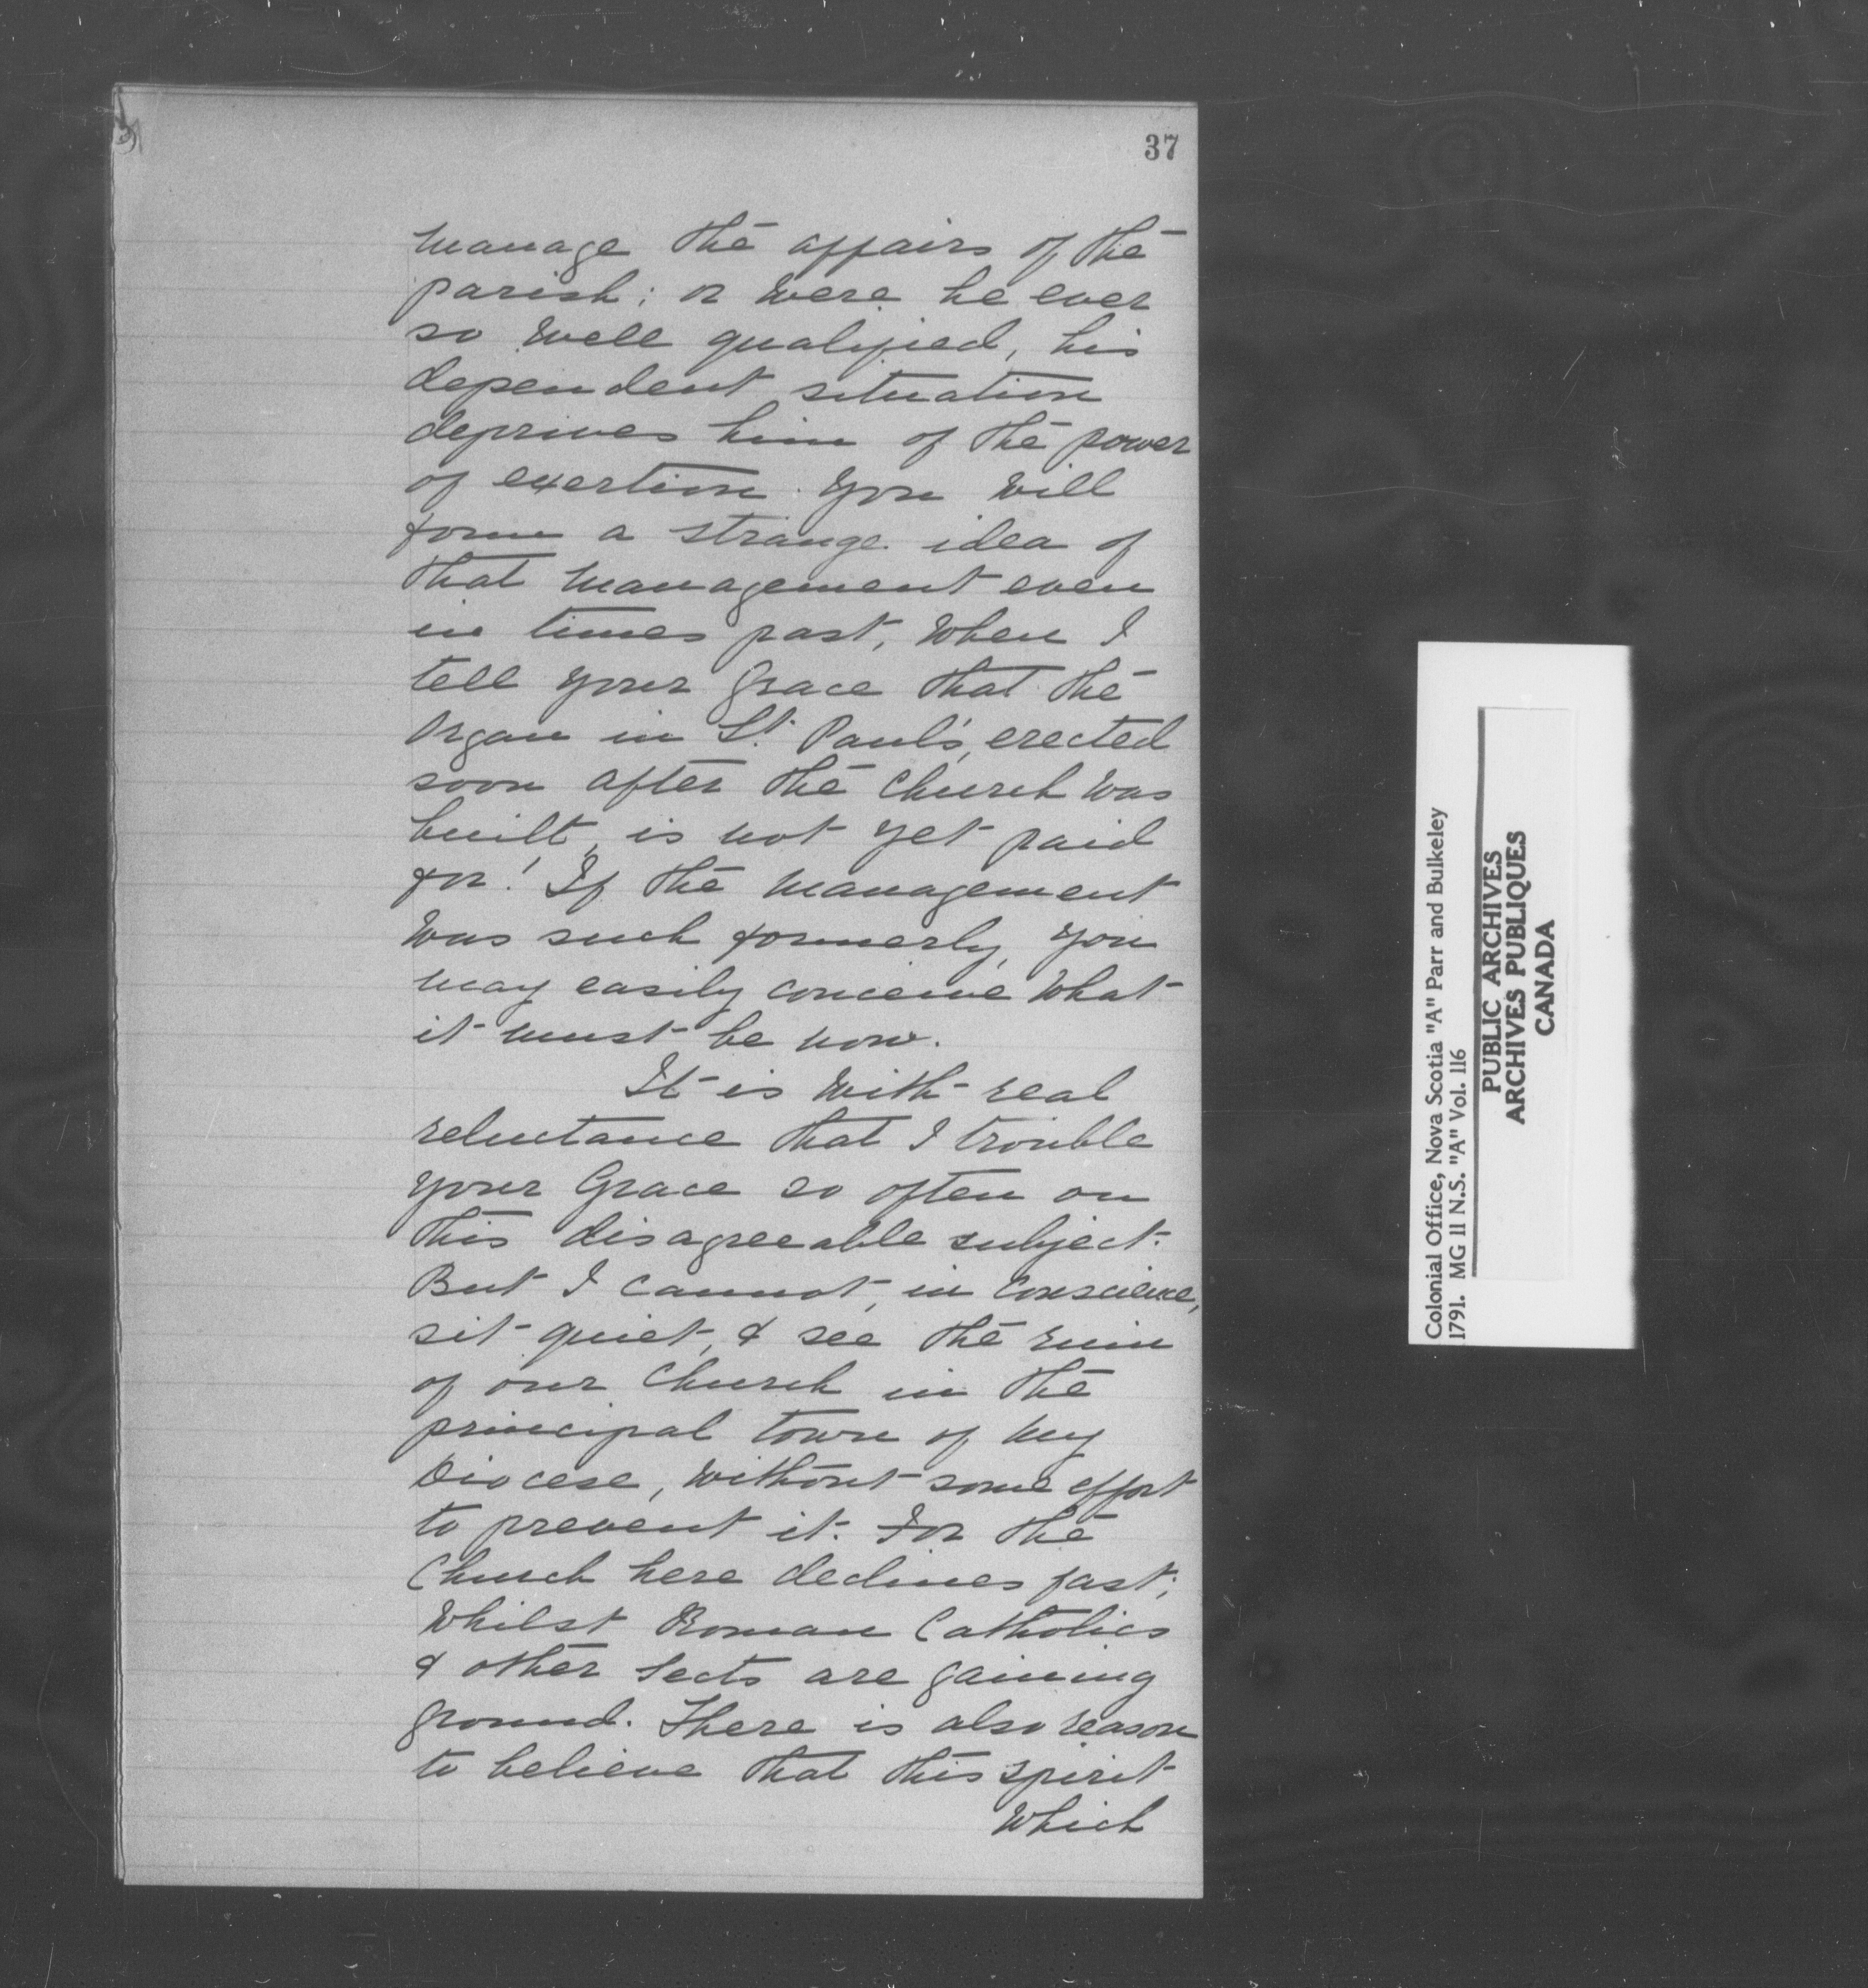 37
manage the affairs of the
parish; or were he ever
so well qualified, his
dependent situation
deprives him of the power
of exertion. You will
form a strange idea of
that management even
in times past, when I
tell your Grace that the
Organ in St. Paul's, erected
soon after the Church was
built, is not yet paid
for! If the management
was such formerly, you
may easily conceive what
it must be now.
It is with real
reluctance that I trouble
your Grace so often on
this disagreeable subject.
But I cannot, in conscience,
sit quiet, & see the ruin
of our Church in the
principal town of my
Diocese, without some effort
to prevent it. For the
Church here declines fast;
whilst Roman Catholics
& other Sects are gaining
ground. There is also reason
to believe that this spirit
which
Colonial Office, Nova Scotia "A" Parr and Bulkeley
1791. MG 11 N.S. "A" Vol. 116
PUBLIC ARCHIVES
ARCHIVES PUBLIQUES
CANADA